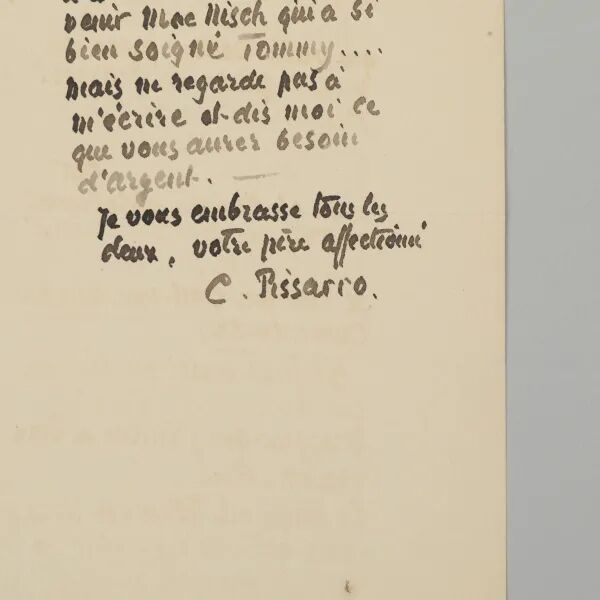 venir Mme Misch qui a si
bien soigné Tommy....
mais ne regarde pas à
m'écrire et dis moi ce
que vous aurez besoin
d'argent. —
Je vous embrasse tous les
deux, votre père affectionné
C. Pissarro.